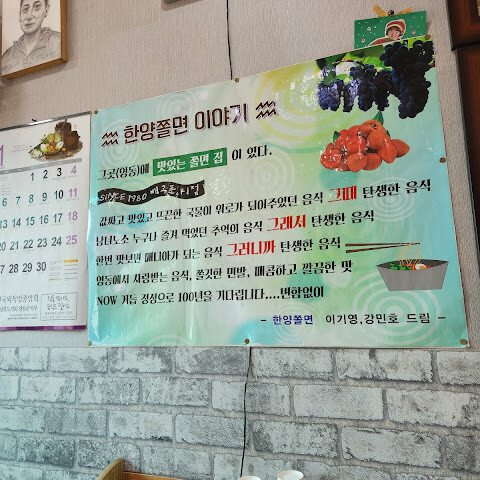 한양쫄면 이야기
그곳(영동)에 맛있는 쫄면 집 이 있다.
SINCE 1960
값싸고 맛있고 뜨끈한 국물이 위로가 되어주었던 음식 그때 탄생한 음식
남녀노소 누구나 즐겨 먹었던 추억의 음식 그래서 탄생한 음식
한번 맛보면 매니아가 되는 음식 그러니까 탄생한 음식
영동에서 사랑받는 음식, 쫄깃한 면발, 매콤하고 깔끔한 맛
NOW 거듭 정성으로 100년을 기다립니다....변함없이
- 한양쫄면 이기영,강민호 드림 -
1
3 4
9 10 11
12 13 14 15 16 17 18
19 20 21 22 23 24 25
26 27 28 29 30